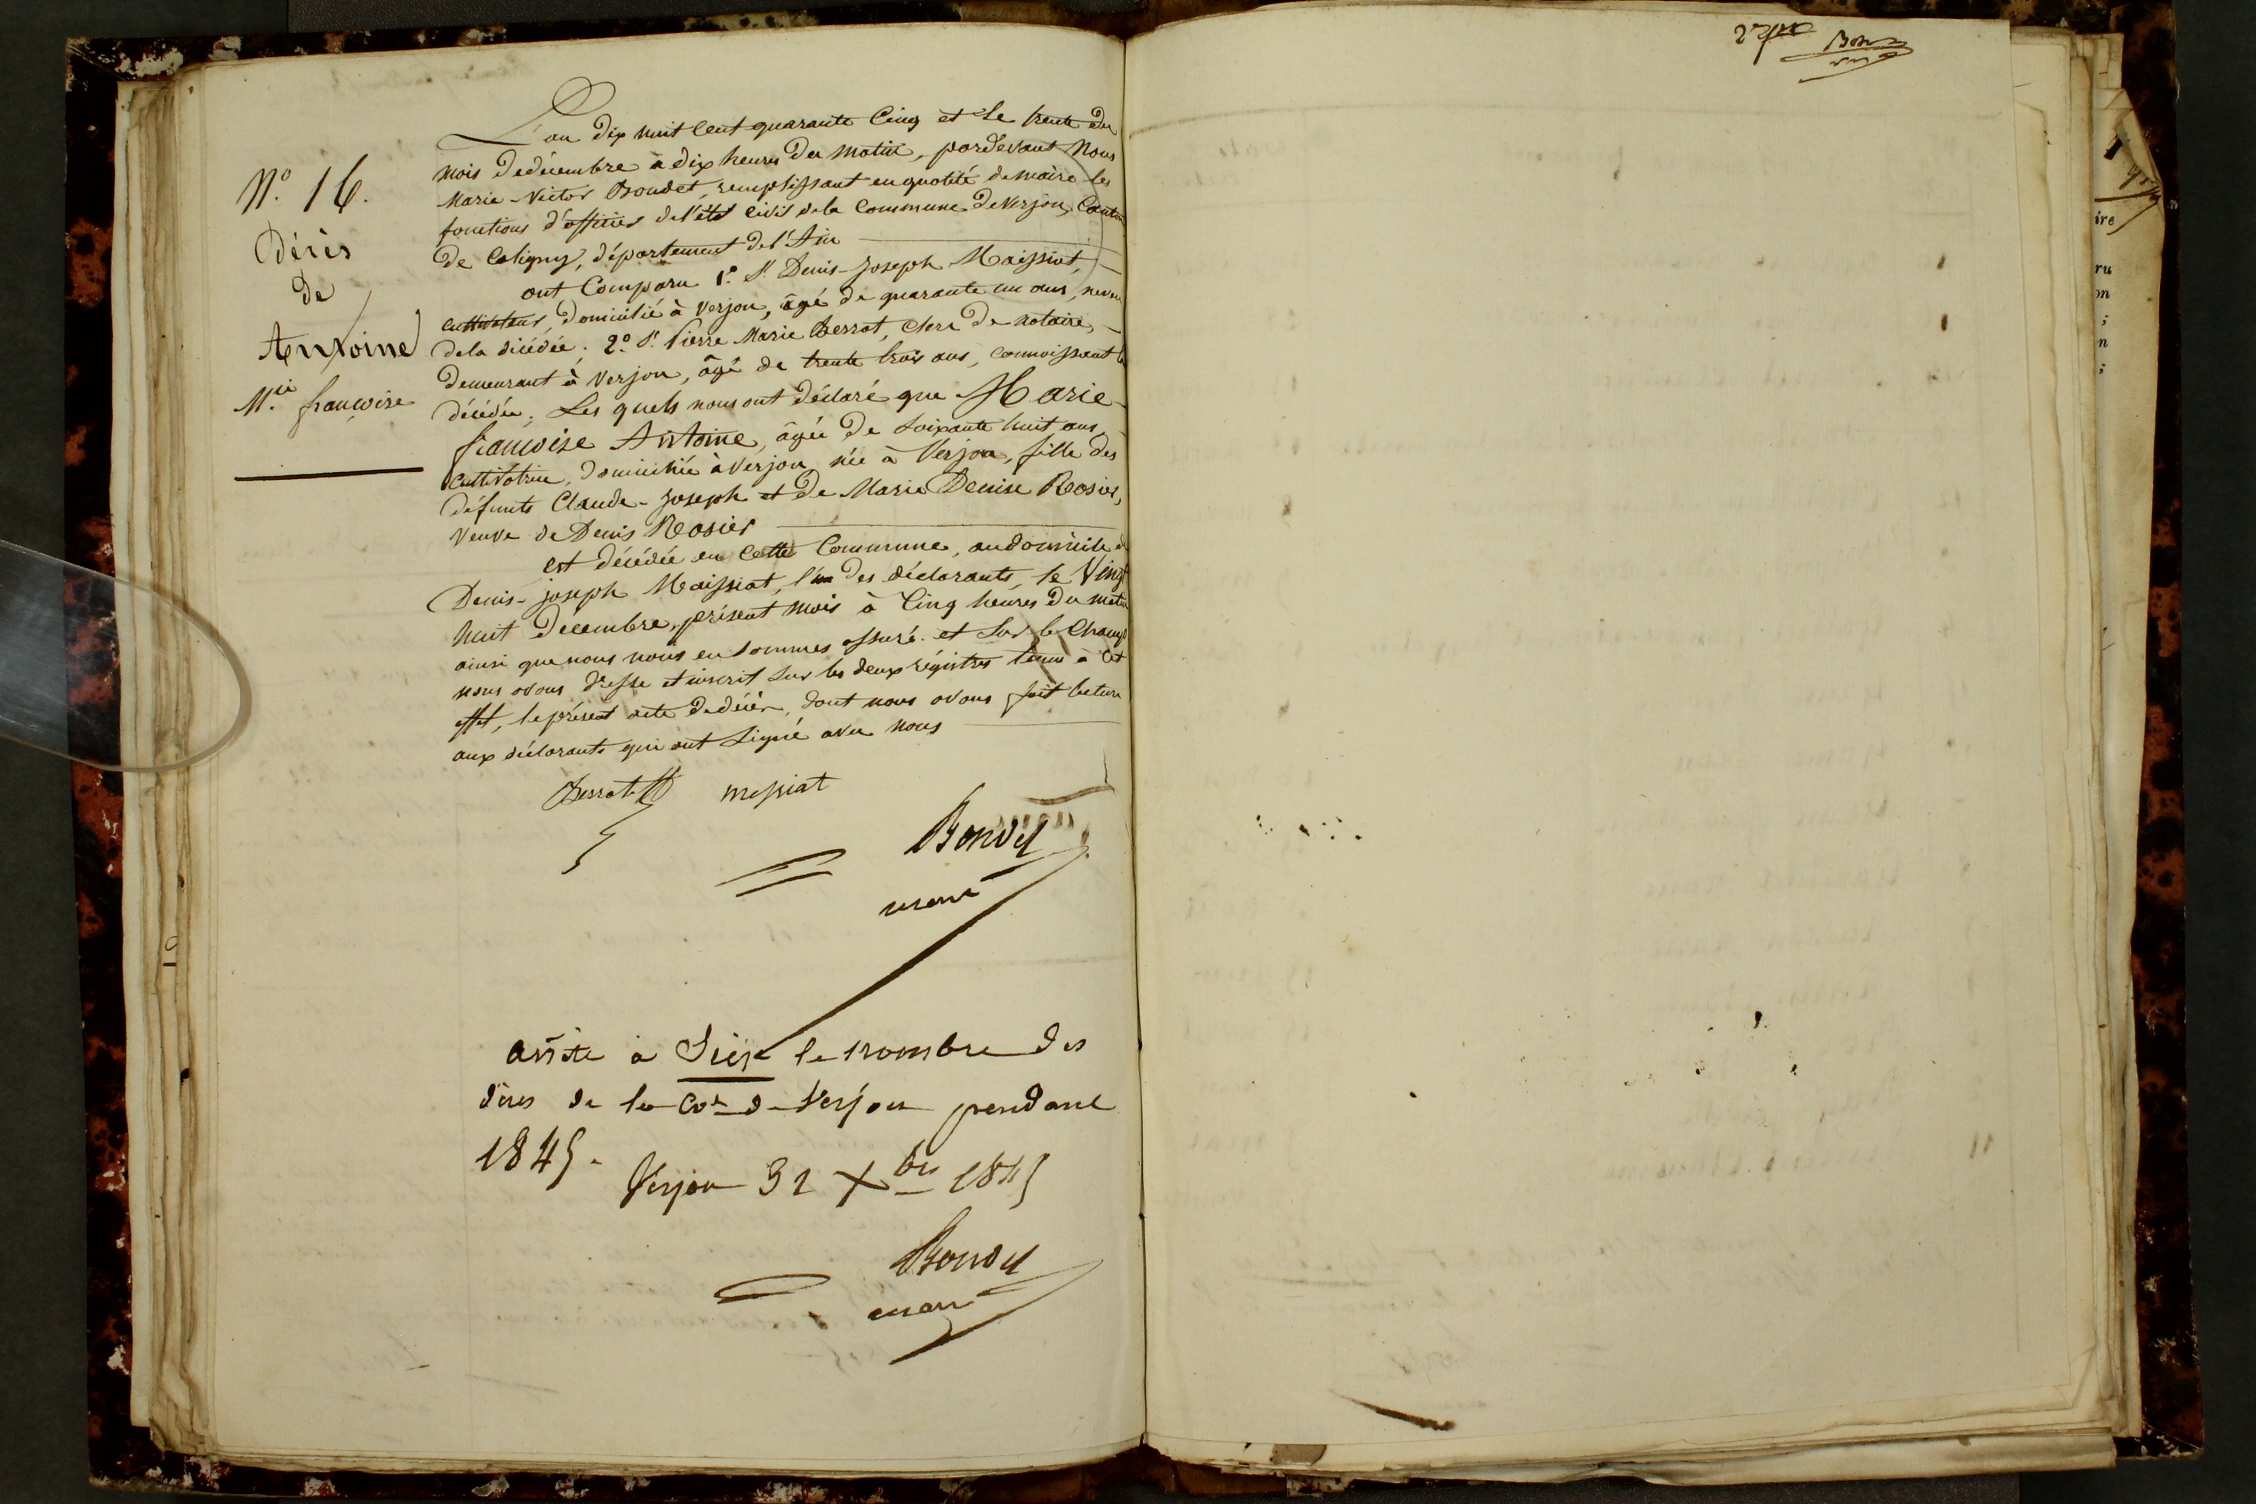 N.º 16.
Décès
de
Antoine
M.ie françoise
L'an dix huit cent quarante cinq et le trente du
mois de décembre à dix heures du matin, pardevant Nous
Marie-Victor Boudet, remplissant en qualité de maire les
fonctions d'officier de l'état civil de la Commune de Verjon, Canton
de Coligny, département de l'Ain
ont Comparu 1.º S.r Denis-Joseph Maissiat,
cultivateur, domicilié à Verjon, âgé de quarante un ans, neveu
de la décédée; 2.º S.r Pierre Marie Berrat, clerc de notaire,
demeurant à Verjon, âgé de trente trois ans, connoissant la
décédée; Les quels nous ont déclaré que Marie
françoise Antoine, âgée de soixante huit ans,
cultivatrice, domiciliée à Verjon, née à Verjon, fille des
défunts Claude-Joseph et de Marie Denise Rosier,
veuve de Denis Rosier
est décédée en Cette Commune, au domicile de
Denis-joseph Maissiat, l'un des déclarants, le Vingt
huit Decembre, présent mois à Cinq heures du matin
ainsi que nous nous en sommes assuré. et sur le Champ
nous avons dressé et inscrit sur les deux régistres tenus à Cet
effet, le présent acte de décès, dont nous avons fait lecture
aux déclarants qui ont Signé avec nous
Berrat messiat
Boudet
maire
arrêté à Seize le nombre des
décès de la Cne de Verjon pendant
1845.
Verjon 31 Xbre 1845
Boudet
maire